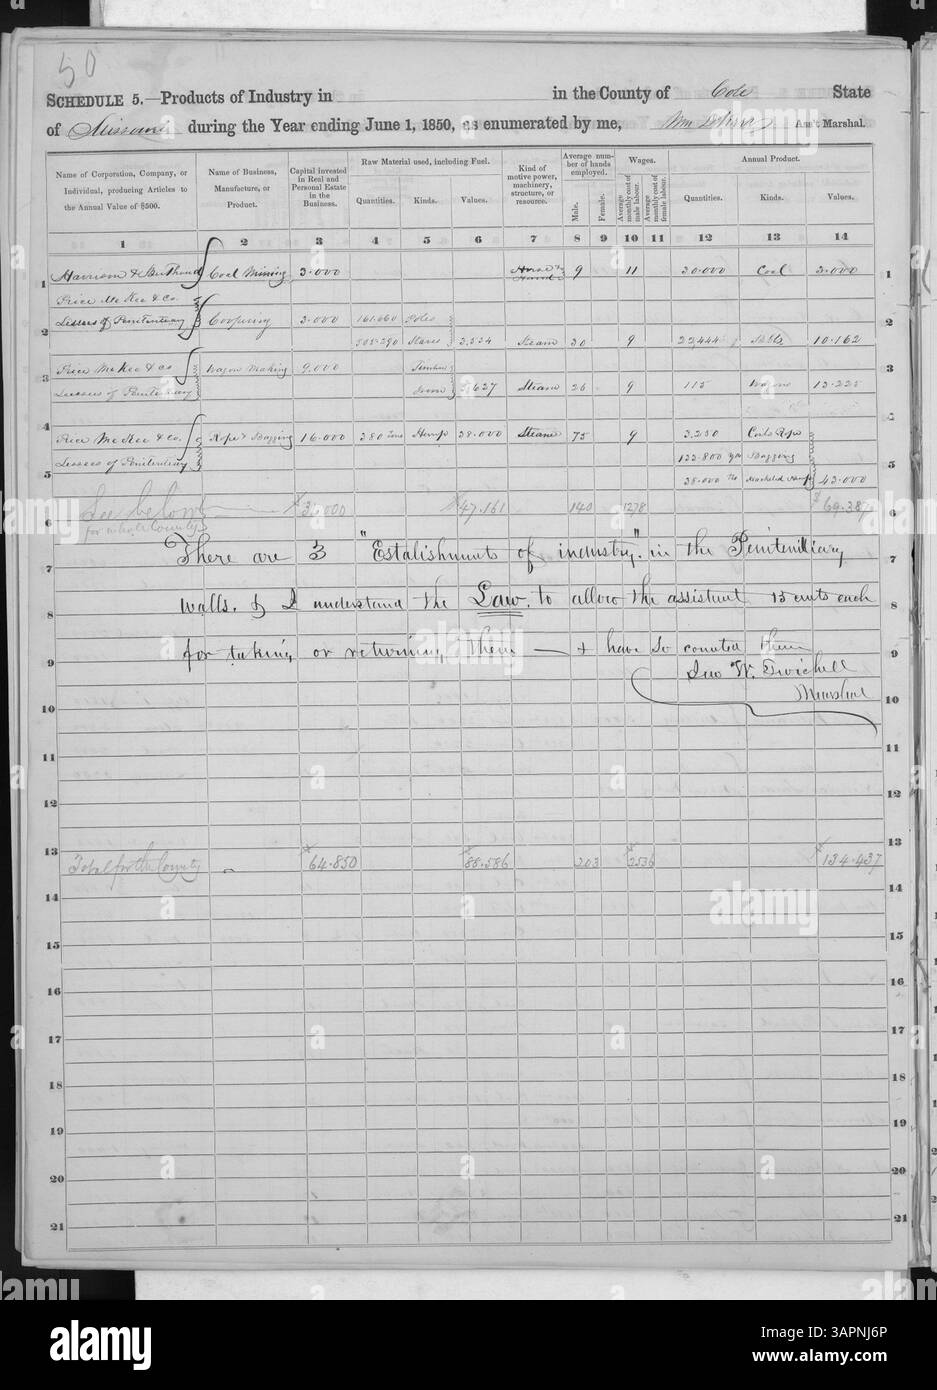 50
SCHEDULE 5.—Products of Industry in in the County of Cole State
of Missouri during the Year ending June 1, 1850, as enumerated by me, Wm Ass't Marshal.
Name of Corporation, Company, or Individual, producing Articles to the Annual Value of $500.
Name of Business, Manufacture, or Product.
Capital invested in Real and Personal Estate in the Business.
Raw Material used, including Fuel.
Quantities. Kinds. Values.
Kind of motive power, machinery, structure, or resource.
Average number of hands employed.
Male. Female.
Wages.
Average monthly cost of male labour. Average monthly cost of female labour.
Annual Product.
Quantities. Kinds. Values.
1 2 3 4 5 6 7 8 9 10 11 12 13 14
1 Harrison & Coal Mining 3.000 Horse & Hand 9 11 30.000 Coal 3.000 1
Price McKee & Co.
2 Lessees of Penitentiary Coopering 3.000 161.660 Poles 2
505.290 Staves 2.534 Steam 30 9 22,444 10.162
3 Price McKee & Co Wagon Making 9.000 Timber 3
Lessees of Penitentiary Iron 627 Steam 26 9 115 Wagons 13.225
4 Price McKee & Co. Rope & Bagging 16.000 380 tons Hemp 38.000 Steam 75 9 3.250 Coils Rope 4
Lessees of Penitentiary 122.800 yds Bagging
5 38.000 lbs Hackled Hemp 43.000 5
See below $31.000 $47.161 140 1278 $69.387
6 for whole County 6
There are 3 "Establishments of industry." in the Penitentiary
7 7
walls. & I understand the Law. to allow the assistant 15 cents each
8 8
for taking or returning them — & have so counted them
9 9
Jno W. Twichell
10 Marshal 10
11 11
12 12
13 13
Total for the County $64.850 $88.586 203 $2536 $134.437
14 14
15 15
16 16
17 17
18 18
19 19
20 20
21 21
alamy
Image ID: 3APNJ6P
www.alamy.com